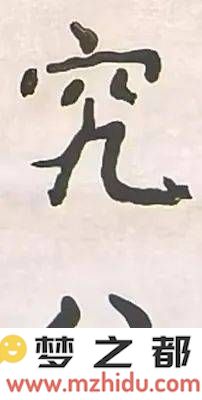 究
梦之都
www.mzhidu.com